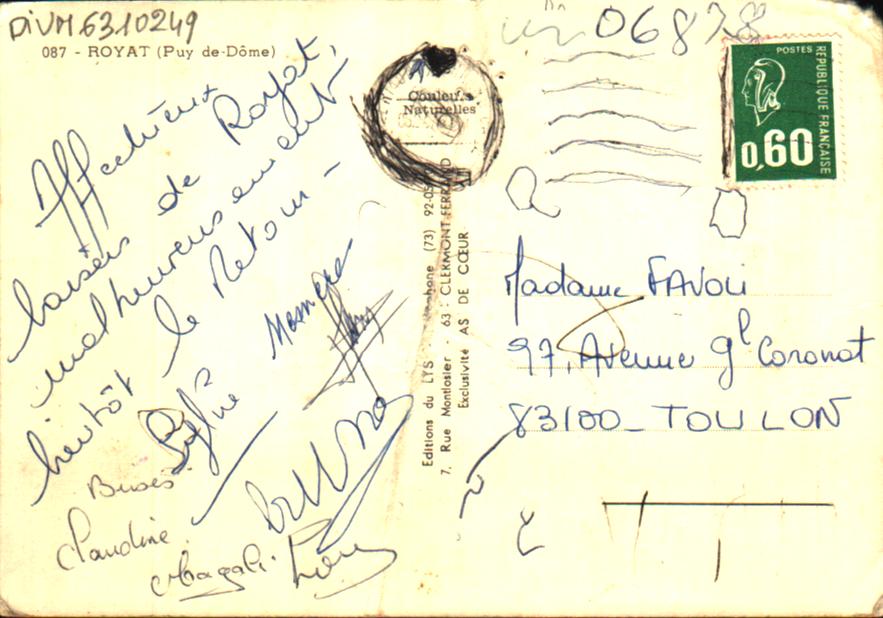 DIVM6310249
087 - ROYAT (Puy de-Dôme)
Affectueux
baisers de Royat,
malheureusement
bientôt le Retour -
Mamére
Bises
Claudine
Bruno
Magali
Couleurs
Naturelles
Editions du LYS
7, Rue Montlosier - 63 - CLERMONT-FERRAND
Exclusivité AS DE CŒUR
06878
POSTES
REPUBLIQUE FRANÇAISE
0,60
Madame FAVOLI
97, Avenue Gl Coronat
83100 - TOULON